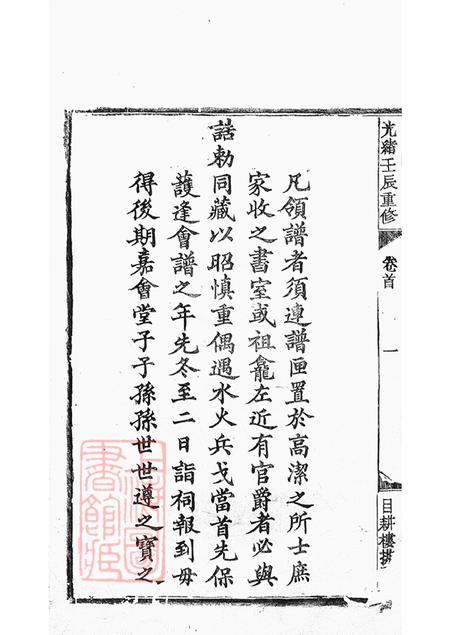 光緒壬辰重修
卷首
一
目耕樓排
凡領譜者須連譜匣置於高潔之所士庶
家收之書室或祖龕左近有官爵者必與
誥勅同藏以昭慎重偶遇水火兵戈當首先保
護逢會譜之年先冬至二日詣祠報到毋
得後期嘉會堂子子孫孫世世遵之寶之